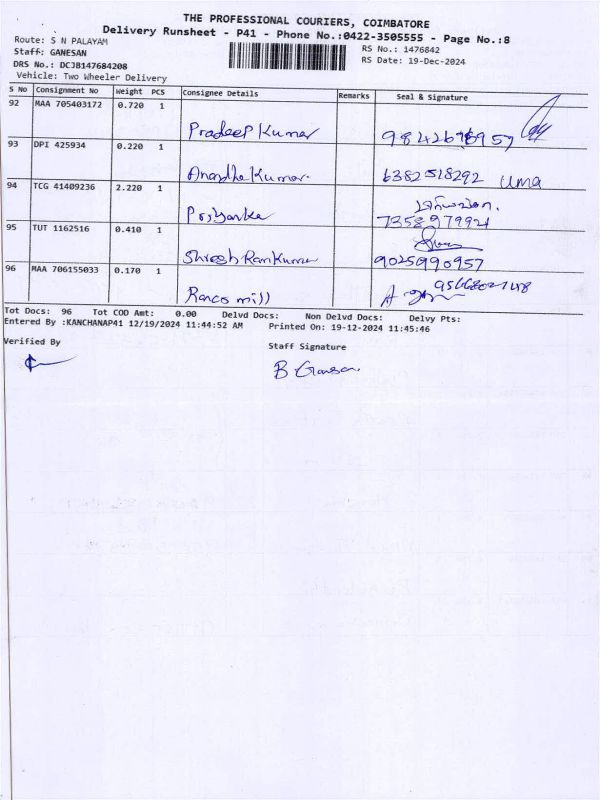 THE PROFESSIONAL COURIERS, COIMBATORE
Delivery Runsheet - P41 - Phone No.:0422-3505555 - Page No.:8
Route: S N PALAYAM
RS No.: 1476842
Staff: GANESAN
RS Date: 19-Dec-2024
DRS No.: DCJB147684208
Vehicle: Two Wheeler Delivery
S No Consignment No Weight PCS Consignee Details Remarks Seal & Signature
92 MAA 705403172 0.720 1
Pradeep Kumar
93 DPI 425934 0.220 1
Anandha Kumar. 6382518292 uma
94 TCG 41409236 2.220 1
Priyanka 7358979921
95 TUT 1162516 0.410 1
Shreeh Ram Kumar 9025990957
96 MAA 706155033 0.170 1
Ranco mill
Tot Docs: 96 Tot COD Amt: 0.00 Delvd Docs: Non Delvd Docs: Delvy Pts:
Entered By :KANCHANAP41 12/19/2024 11:44:52 AM Printed On: 19-12-2024 11:45:46
Verified By
Staff Signature
B Ganesan